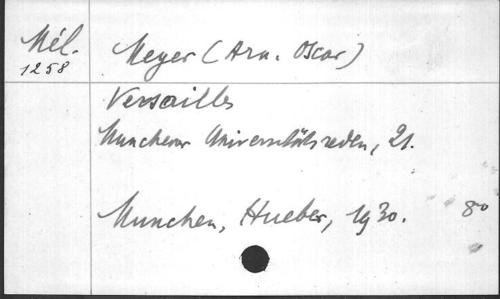 Mél.
1258
Meyer (Arn. Oscar)
Versailles
Münchener Universitätsreden, 21.
München, Hueber, 1930. 8°